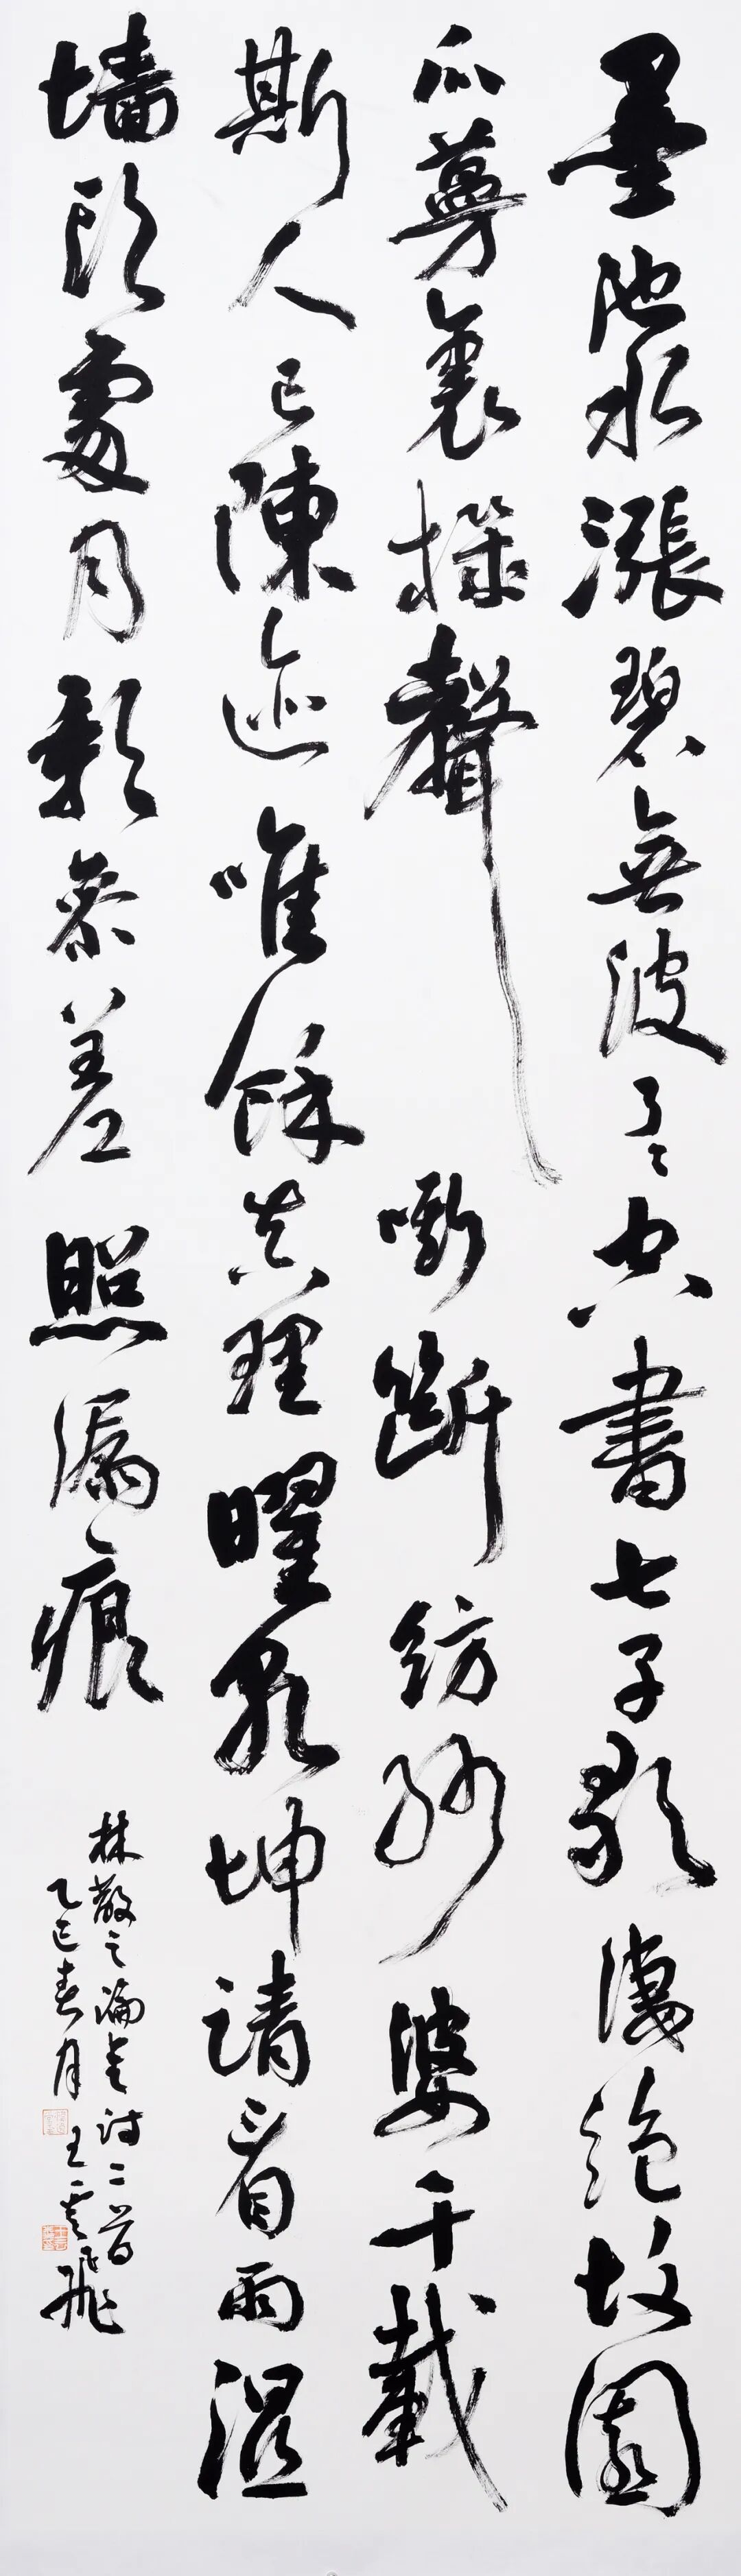 墨池水漲碧無波了了空書七子歌凄絕故園
瓜蔓裏機聲嘶斷紡紗婆千載
斯人已陳迹唯餘真理曜乾坤請看雨濕
墻頭處月影參差照漏痕
林散之論書詩二首
乙巳春月王雲飛